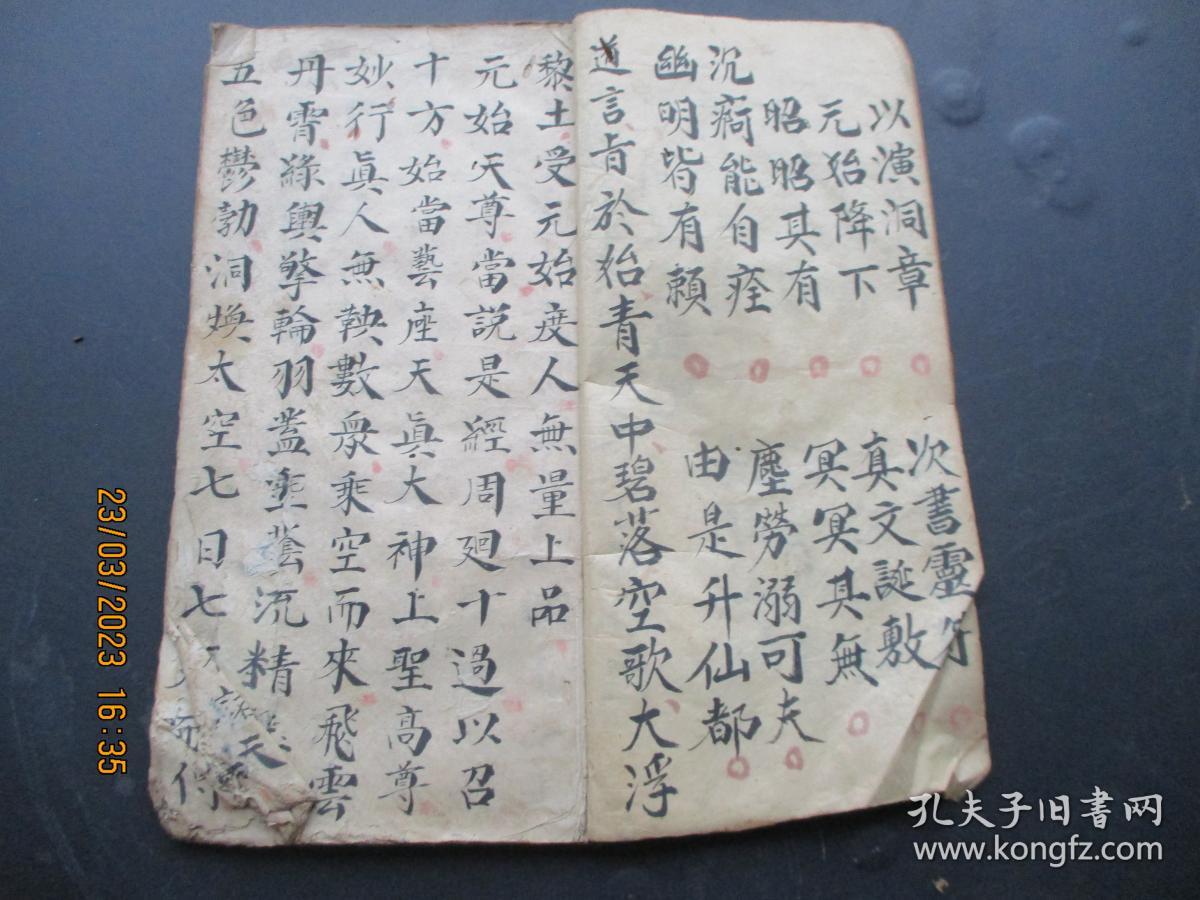 以演洞章 次書靈符
元始降下 真文誕敷
昭昭其有 冥冥其無
沉痾能自痊 塵勞溺可夫
幽明皆有賴 由是升仙都
道言旨於始青天中碧落空歌大浮
黎土受元始度人無量上品
元始天尊當説是經周廻十過以召
十方始當藝座天眞大神上聖高尊
妙行眞人無鞅數衆乘空而來飛雲
丹霄綠輿擎輪羽蓋垂流精天
五色鬱勃洞煥太空七日七
23/03/2023 16:35
孔夫子旧书网
www.kongfz.com